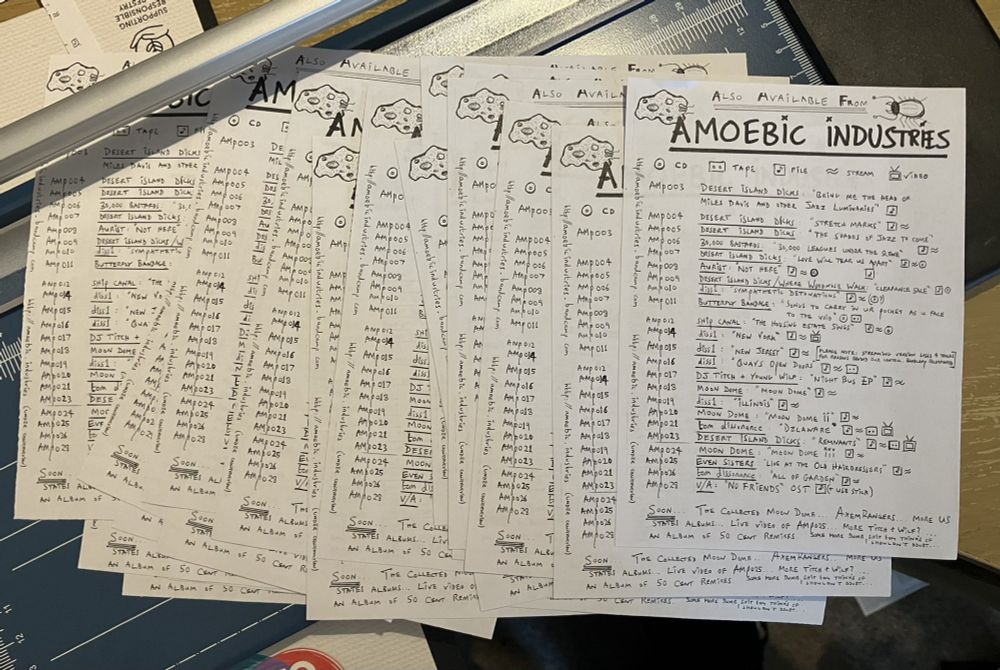 SUPPORTING
RESPONSIBLE
ALSO AVAILABLE FROM
AMOEBIC INDUSTRIES
CD TAPE FILE STREAM VIDEO
AMP003 DESERT ISLAND DICKS "BRING ME THE HEAD OF
MILES DAVIS AND OTHER JAZZ LUMINARIES"
AMP004 DESERT ISLAND DICKS "STRETCH MARKS"
AMP005 DESERT ISLAND DICKS: "THE SPADES OF JAZZ TO COME"
AMP006 30,000 BASTARDS: "30,000 LEAGUES UNDER THE
AMP007 DESERT ISLAND DICKS: "LOVE WILL TEAR US APART"
AMP008 AURIST: NOT HERE
AMP009 DESERT ISLAND DICKS/WHERE WOODWOS WALK: "CLEARANCE SALE"
AMP010 diss1: "SYMPATHETIC DETONATIONS"
AMP011 BUTTERFLY BANDAGE: "SONGS TO CARRY IN UR POCKET AS U FACE
TO THE VOID"
AMP012 SHIP CANAL: "THE HOUSING ESTATE SINGS"
AMP014 diss1: "NEW YORK"
AMP015 diss1: "NEW JERSEY" (PLEASE NOTE: STREAMING VERSION
AMP016 diss1: "QUAY'S OPEN DOORS"
AMP017 DJ TITCH + YOUNG WILF: "NIGHT BUS EP"
AMP018 MOON DOME: "MOON DOME"
AMP019 diss1: "ILLINOIS"
AMP020 MOON DOME: "MOON DOME ii"
AMP021 tom dissonance: "DELAWARE"
AMP023 DESERT ISLAND DICKS: "REMNANTS"
AMP024 MOON DOME: "MOON DOME iii"
AMP025 EVEN SISTERS "LIVE AT THE OLD HAIRDRESSERS"
AMP026 tom dissonance: "ALL OF GARDEN"
AMP028 V/A: "NO FRIENDS" OST (+ USB STICK)
SOON... THE COLLECTED MOON DOME... AXEM RANGERS... MORE US
STATES ALBUMS... LIVE VIDEO OF AMP025... MORE TITCH + WILF?
AN ALBUM OF 50 CENT REMIXES SOME MORE SOME SHIT TOM THINKS OF
I SHOULDN'T DOUBT...
http://amoebicindustries.bandcamp.com
http://amoebic.industries (UNDER CONSTRUCTION)